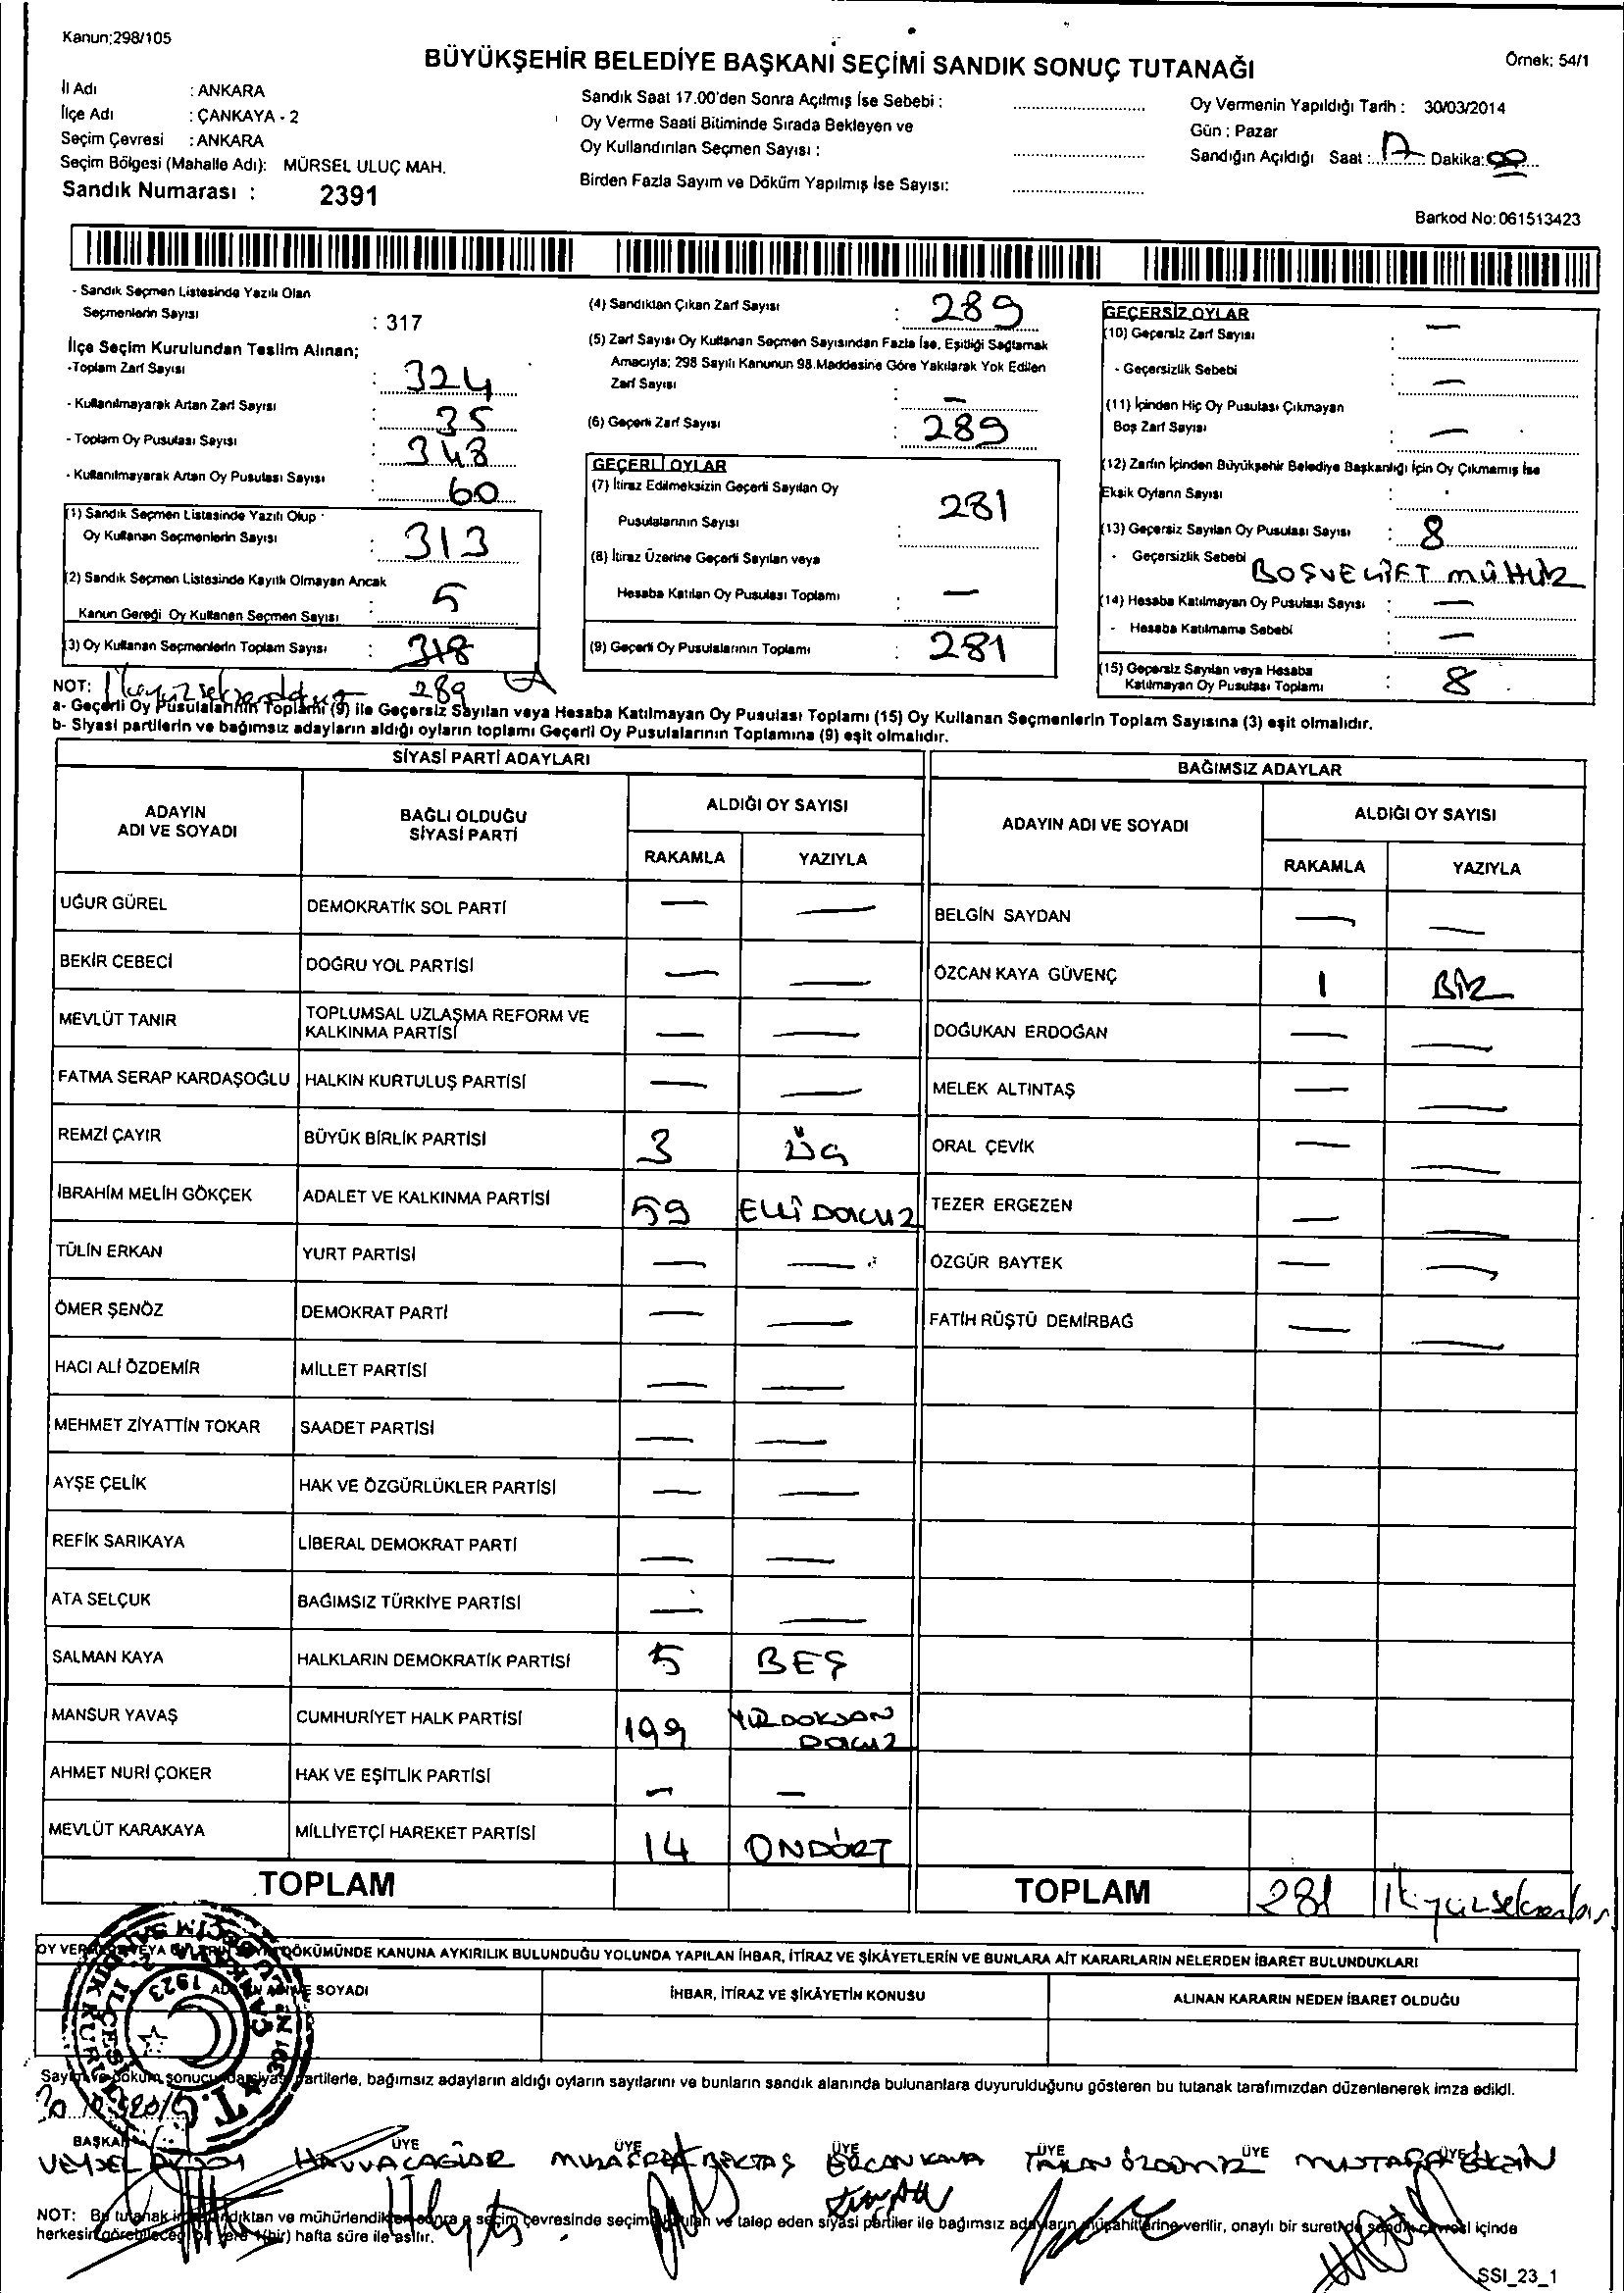 Kanun;298/105
BÜYÜKŞEHİR BELEDİYE BAŞKANI SEÇİMİ SANDIK SONUÇ TUTANAĞI
Örnek: 54/1
İl Adı : ANKARA
İlçe Adı : ÇANKAYA - 2
Seçim Çevresi : ANKARA
Seçim Bölgesi (Mahalle Adı): MÜRSEL ULUÇ MAH.
Sandık Numarası : 2391
Sandık Saat 17.00'den Sonra Açılmış İse Sebebi :
Oy Verme Saati Bitiminde Sırada Bekleyen ve
Oy Kullandırılan Seçmen Sayısı :
Birden Fazla Sayım ve Döküm Yapılmış İse Sayısı:
Oy Vermenin Yapıldığı Tarih : 30/03/2014
Gün : Pazar
Sandığın Açıldığı Saat : 17 Dakika: 00
Barkod No: 061513423
- Sandık Seçmen Listesinde Yazılı Olan
Seçmenlerin Sayısı : 317
İlçe Seçim Kurulundan Teslim Alınan;
-Toplam Zarf Sayısı : 324
- Kullanılmayarak Artan Zarf Sayısı : 35
- Toplam Oy Pusulası Sayısı : 348
- Kullanılmayarak Artan Oy Pusulası Sayısı : 60
(1) Sandık Seçmen Listesinde Yazılı Olup
Oy Kullanan Seçmenlerin Sayısı : 313
(2) Sandık Seçmen Listesinde Kayıtlı Olmayan Ancak
Kanun Gereği Oy Kullanan Seçmen Sayısı : 5
(3) Oy Kullanan Seçmenlerin Toplam Sayısı : 318
289
(4) Sandıktan Çıkan Zarf Sayısı : 289
(5) Zarf Sayısı Oy Kullanan Seçmen Sayısından Fazla İse, Eşitliği Sağlamak
Amacıyla; 298 Sayılı Kanunun 98.Maddesine Göre Yakılarak Yok Edilen
Zarf Sayısı : —
(6) Geçerli Zarf Sayısı : 289
GEÇERLİ OYLAR
(7) İtiraz Edilmeksizin Geçerli Sayılan Oy
Pusulalarının Sayısı : 281
(8) İtiraz Üzerine Geçerli Sayılan veya
Hesaba Katılan Oy Pusulası Toplamı : —
(9) Geçerli Oy Pusulalarının Toplamı : 281
GEÇERSİZ OYLAR
(10) Geçersiz Zarf Sayısı : —
- Geçersizlik Sebebi : —
(11) İçinden Hiç Oy Pusulası Çıkmayan
Boş Zarf Sayısı : —
(12) Zarfın İçinden Büyükşehir Belediye Başkanlığı İçin Oy Çıkmamış İse
Eksik Oyların Sayısı :
(13) Geçersiz Sayılan Oy Pusulası Sayısı : 8
- Geçersizlik Sebebi BOŞ VE ÇİFT MÜHÜR
(14) Hesaba Katılmayan Oy Pusulası Sayısı : —
- Hesaba Katılmama Sebebi : —
(15) Geçersiz Sayılan veya Hesaba
Katılmayan Oy Pusulası Toplamı : 8
NOT:
a- Geçerli Oy Pusulalarının Toplamı (9) ile Geçersiz Sayılan veya Hesaba Katılmayan Oy Pusulası Toplamı (15) Oy Kullanan Seçmenlerin Toplam Sayısına (3) eşit olmalıdır.
b- Siyasi partilerin ve bağımsız adayların aldığı oyların toplamı Geçerli Oy Pusulalarının Toplamına (9) eşit olmalıdır.
SİYASİ PARTİ ADAYLARI
ADAYIN ADI VE SOYADI
BAĞLI OLDUĞU SİYASİ PARTİ
ALDIĞI OY SAYISI
RAKAMLA YAZIYLA
UĞUR GÜREL DEMOKRATİK SOL PARTİ — —
BEKİR CEBECİ DOĞRU YOL PARTİSİ — —
MEVLÜT TANIR TOPLUMSAL UZLAŞMA REFORM VE KALKINMA PARTİSİ — —
FATMA SERAP KARDAŞOĞLU HALKIN KURTULUŞ PARTİSİ — —
REMZİ ÇAYIR BÜYÜK BİRLİK PARTİSİ 3 ÜÇ
İBRAHİM MELİH GÖKÇEK ADALET VE KALKINMA PARTİSİ 59 ELLİ DOKUZ
TÜLİN ERKAN YURT PARTİSİ — —
ÖMER ŞENÖZ DEMOKRAT PARTİ — —
HACI ALİ ÖZDEMİR MİLLET PARTİSİ — —
MEHMET ZİYATTİN TOKAR SAADET PARTİSİ — —
AYŞE ÇELİK HAK VE ÖZGÜRLÜKLER PARTİSİ — —
REFİK SARIKAYA LİBERAL DEMOKRAT PARTİ — —
ATA SELÇUK BAĞIMSIZ TÜRKİYE PARTİSİ — —
SALMAN KAYA HALKLARIN DEMOKRATİK PARTİSİ 5 BEŞ
MANSUR YAVAŞ CUMHURİYET HALK PARTİSİ 199 YÜZDOKSAN DOKUZ
AHMET NURİ ÇOKER HAK VE EŞİTLİK PARTİSİ — —
MEVLÜT KARAKAYA MİLLİYETÇİ HAREKET PARTİSİ 14 ONDÖRT
TOPLAM
BAĞIMSIZ ADAYLAR
ADAYIN ADI VE SOYADI
ALDIĞI OY SAYISI
RAKAMLA YAZIYLA
BELGİN SAYDAN — —
ÖZCAN KAYA GÜVENÇ 1 BİR
DOĞUKAN ERDOĞAN — —
MELEK ALTINTAŞ — —
ORAL ÇEVİK — —
TEZER ERGEZEN — —
ÖZGÜR BAYTEK — —
FATİH RÜŞTÜ DEMİRBAĞ — —
TOPLAM 281
DÖKÜMÜNDE KANUNA AYKIRILIK BULUNDUĞU YOLUNDA YAPILAN İHBAR, İTİRAZ VE ŞİKÂYETLERİN VE BUNLARA AİT KARARLARIN NELERDEN İBARET BULUNDUKLARI
SOYADI
İHBAR, İTİRAZ VE ŞİKÂYETİN KONUSU
ALINAN KARARIN NEDEN İBARET OLDUĞU
1923
T.C.
partilerle, bağımsız adayların aldığı oyların sayılarını ve bunların sandık alanında bulunanlara duyurulduğunu gösteren bu tutanak tarafımızdan düzenlenerek imza edildi.
BAŞKAN ÜYE ÜYE ÜYE ÜYE ÜYE ÜYE
NOT: Bu tutanak ve mühürlendikten sonra seçim çevresinde seçime katılan ve talep eden siyasi partiler ile bağımsız adayların müşahitlerine verilir, onaylı bir sureti de sandık çevresi içinde
herkesin görebileceği bir yere 1(bir) hafta süre ile asılır.
SSI_23_1